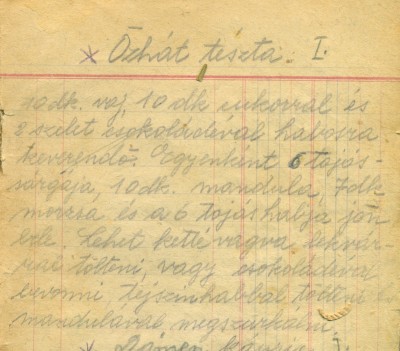 Őzhát teszta. I.
10 dk. vaj, 10 dk cukorral és
2 szelet csokoládéval habosra
keverendő. Egyenként 6 tojás-
sárgája, 10 dk. mandula, 7 dk
morzsa és a 6 tojás habja jön
bele. Lehet kettévágva lekvár-
ral tölteni, vagy csokoládéval
bevonni, tejszínhabbal tölteni
mandulával megszurkálni.